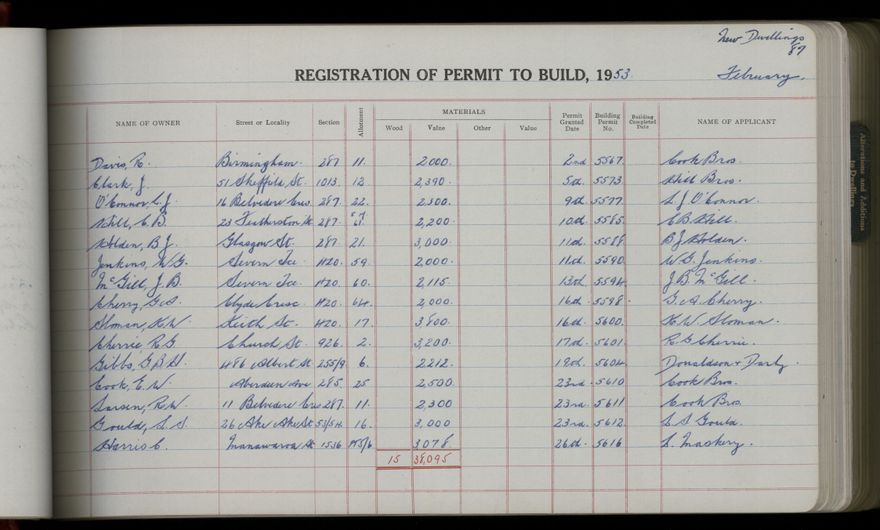 New Dwellings
87
REGISTRATION OF PERMIT TO BUILD, 1953.
February.
NAME OF OWNER Street or Locality Section Allotment MATERIALS Wood Value Other Value Permit Granted Date Building Permit No. Building Completed Date NAME OF APPLICANT
Davis, R. Birmingham. 287 11. 2,000. 2nd 5567. Cook Bros.
Clark, J. 51 Sheffield St. 1013. 12 2,390. 5th. 5573 Bros.
O'Connor, L.J. 16 Belvedere Cres. 287. 22. 2,300. 9th 5577. L J O'Connor.
23 Featherston St. 287. 2,200. 10th 5585.
Holden, B J. Glasgow St. 287 21. 3,000. 11th. 5588 B J Holden.
Jenkins, W G. Severn Tce. 1420. 59. 2,000. 11th. 5590 W G. Jenkins.
McGill, J.B. Severn Tce. 1420. 60. 2,115. 13th. 5594. J.B. McGill.
Cherry, G.A. Clyde Cresc. 1420. 64. 2,000. 16th. 5598. G.A. Cherry.
Sloman, K.W. Keith St. 1420. 17. 3,800. 16th. 5600. K.W Sloman.
Cherrie, R G Church St. 926. 2. 3,200. 17th. 5601. R G Cherrie.
Gibbs, G B H. 486 Albert St. 255/9 6. 2212. 18th. 5604. Donaldson + Darby.
Cook, E. W. Aberdeen Ave 285. 25 2,500 23rd. 5610 Cook Bros.
Larsen, R.W. 11 Belvedere Cres 287. 11. 2,300 23rd. 5611 Cook Bros.
Gould, L S. 26 Ake Ake St. 53/54. 16. 3,000 23rd. 5612. L S Gould.
Harris C. Manawaroa St 1536 3,078. 26th. 5616 L. Maskery.
15 38,095
Alterations and Additions
to Dwellings